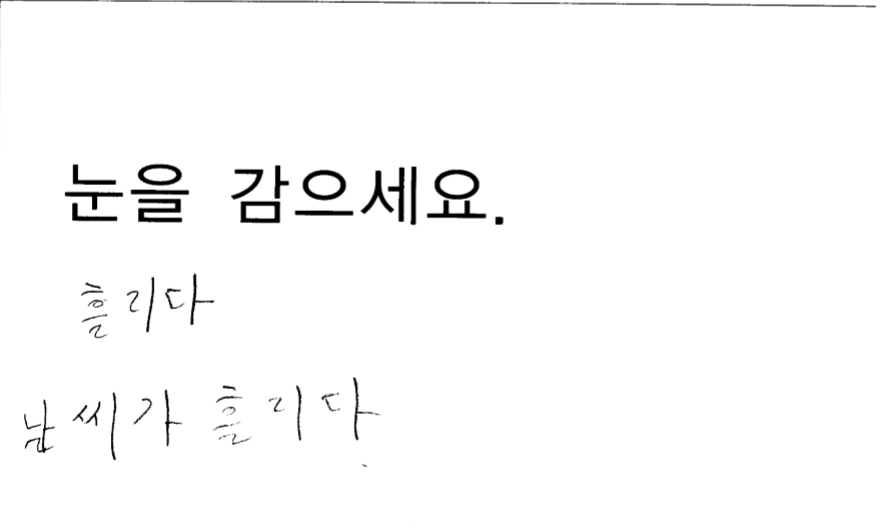 눈을 감으세요.
흘리다
날씨가 흘리다.